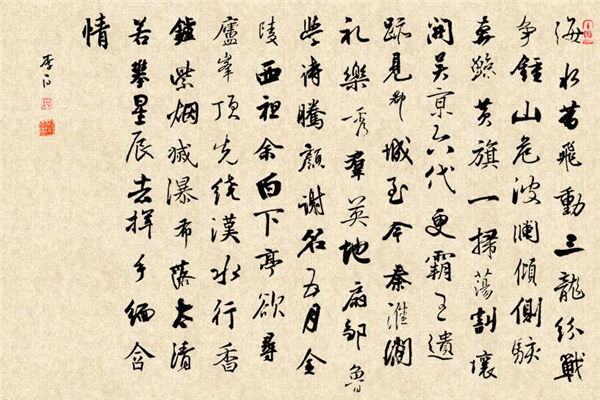 海水昔飛動三龍紛戰
争鍾山危波瀾傾側駭
奔鯨黄旗一掃蕩割壤
開吴京六代更霸王遺
跡見都城至今秦淮間
礼樂秀羣英地扇鄒魯
學詩騰顔謝名五月金
陵西祖余白下亭欲尋
廬峯頂先繞漢水行香
鑪紫烟滅瀑布落太清
若攀星辰去揮手緬含
情
李白